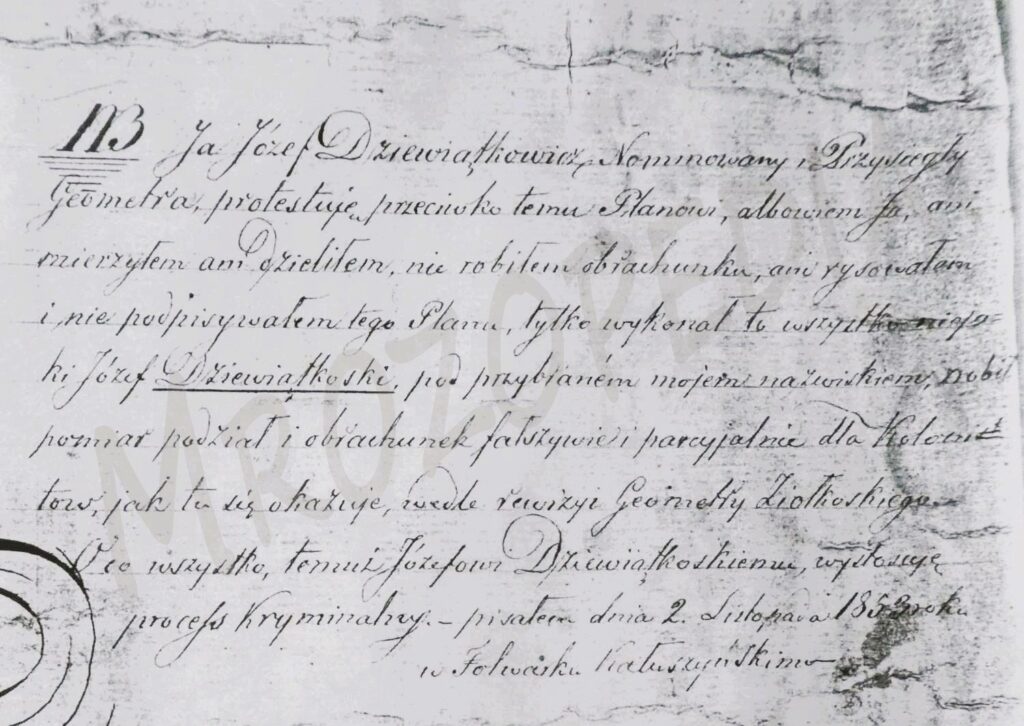 113 Ja Józef Dziewiątkowicz, Nominowany i Przysięgły
Geometra, protestuję przeciwko temu Planowi, albowiem Ja, ani
mierzyłem ani dzieliłem, nie robiłem obrachunku, ani rysowałem
i nie podpisywałem tego Planu, tylko wykonał to wszystko nieja-
ki Józef Dziewiątkoski, pod przybraném mojem nazwiskiem, robił
pomiar podział i obrachunek fałszywie i parcyjalnie dla Kolonis-
tow, jak tu się okazuje, wedle rewizyi Geometry Ziołkoskiego
O co wszystko, temuż Józefowi Dziewiątkoskiemu, wystosuję
process Kryminalny. – pisałem dnia 2. Listopada 1853 roku
w Folwarku Kałuszyńskim
MROZOPEDIA